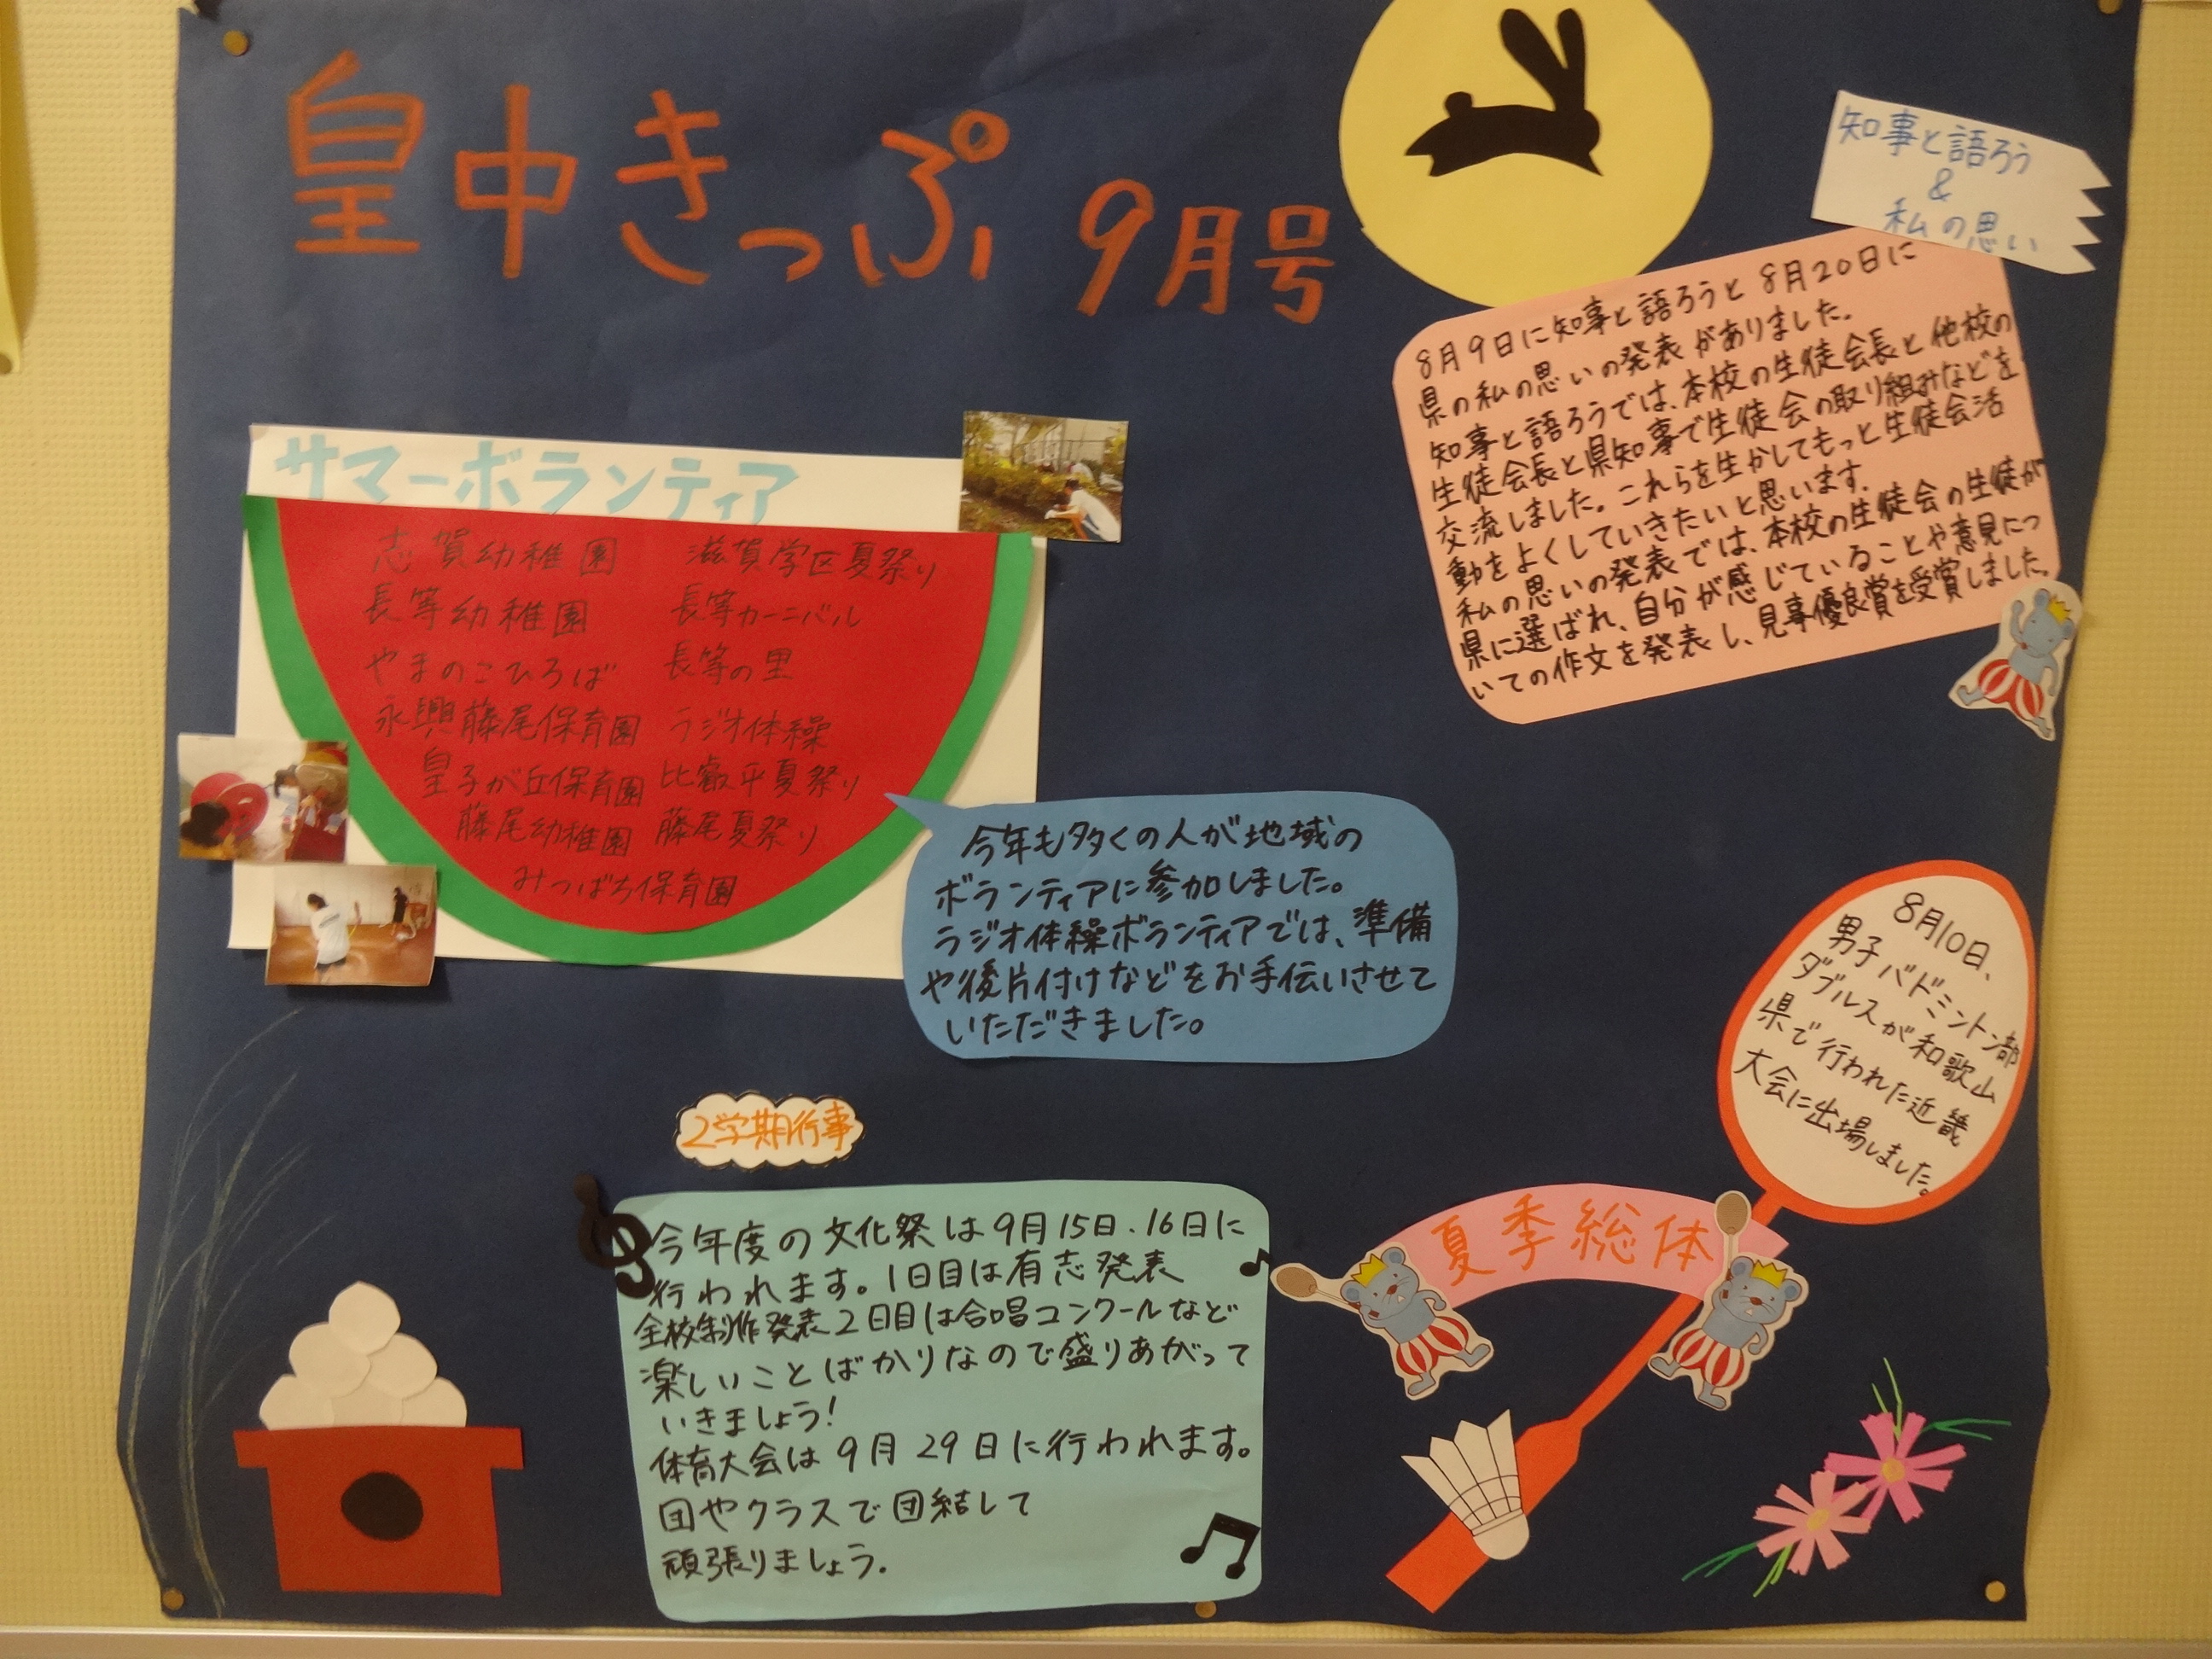 皇中きっぷ 9月号
知事と語ろう
&
私の思い
8月9日に知事と語ろうと8月20日に
県の私の思いの発表がありました。
知事と語ろうでは、本校の生徒会長と他校の
生徒会長と県知事で生徒会の取り組みなどを
交流しました。これらを生かしてもっと生徒会活
動をよくしていきたいと思います。
私の思いの発表では、本校の生徒会の生徒が
県に選ばれ、自分が感じていることや意見につ
いての作文を発表し、見事優良賞を受賞しました。
サマーボランティア
志賀幼稚園 滋賀学区夏祭り
長等幼稚園 長等カーニバル
やまのこひろば 長等の里
永興藤尾保育園 ラジオ体操
皇子が丘保育園 比叡平夏祭り
藤尾幼稚園 藤尾夏祭り
みつばち保育園
今年も多くの人が地域の
ボランティアに参加しました。
ラジオ体操ボランティアでは、準備
や後片付けなどをお手伝いさせて
いただきました。
8月10日、
男子バドミントン部
ダブルスが和歌山
県で行われた近畿
大会に出場しました。
夏季総体
2学期行事
今年度の文化祭は9月15日、16日に
行われます。1日目は有志発表
全校制作発表2日目は合唱コンクールなど
楽しいことばかりなので盛りあがって
いきましょう!
体育大会は9月29日に行われます。
団やクラスで団結して
頑張りましょう。